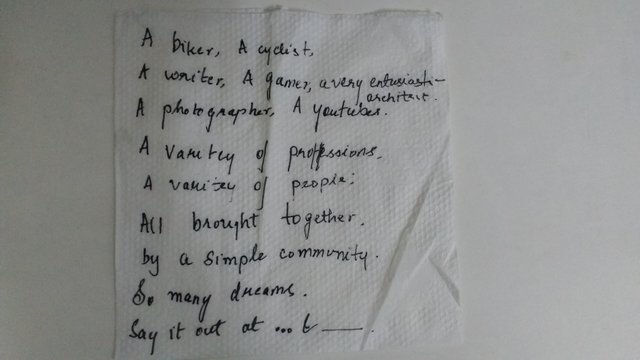 A biker, A cyclist,
A writer, A gamer, a very entusiasti-
architect.
A photographer, A youtuber.
A Varitey of proffssions.
A varitey of people;
All brought together.
by a simple community.
So many dreams.
Say it out at ...